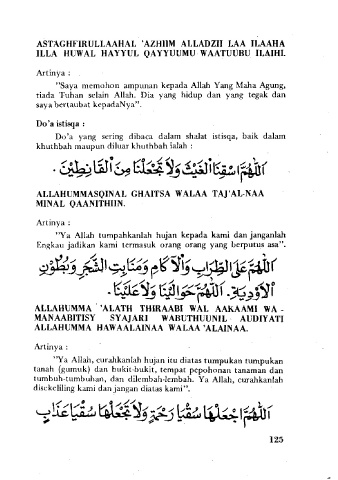 ASTAGHFIRULLAAHAL 'AZHIIM ALLADZII LAA ILAAHA
ILLA HUWAL HAYYUL QAYYUUMU WAATUUBU ILAIHI.
Artinya :
"Saya memohon ampunan kepada Allah Yang Maha Agung,
tiada Tuhan selain Allah. Dia yang hidup dan yang tegak dan
saya bertaubat kepadaNya".
Do'a istisqa :
Do'a yang sering dibaca dalam shalat istisqa, baik dalam
khuthbah maupun diluar khuthbah ialah :
اَللّٰهُمَّ اسْقِنَا الْغَيْثَ وَلَا تَجْعَلْنَا مِنَ الْقَانِطِيْنَ.
ALLAHUMMASQINAL GHAITSA WALAA TAJ'AL-NAA
MINAL QAANITHIIN.
Artinya :
"Ya Allah tumpahkanlah hujan kepada kami dan janganlah
Engkau jadikan kami termasuk orang orang yang berputus asa".
اَللّٰهُمَّ عَلَى الظِّرَابِ وَالْاٰكَامِ وَمَنَابِتِ الشَّجَرِ وَبُطُوْنِ
الْاَوْدِيَةِ. اَللّٰهُمَّ حَوَالَيْنَا وَلَا عَلَيْنَا.
ALLAHUMMA 'ALATH THIRAABI WAL AAKAAMI WA -
MANAABITISY SYAJARI WABUTHUUNIL AUDIYATI
ALLAHUMMA HAWAALAINAA WALAA 'ALAINAA.
Artinya :
"Ya Allah, curahkanlah hujan itu diatas tumpukan tumpukan
tanah (gumuk) dan bukit-bukit, tempat pepohonan tanaman dan
tumbuh-tumbuhan, dan dilembah-lembah. Ya Allah, curahkanlah
disekeliling kami dan jangan diatas kami".
اَللّٰهُمَّ اجْعَلْهَا سُقْيَا رَحْمَةٍ وَلَا تَجْعَلْهَا سُقْيَا عَذَابٍ
125